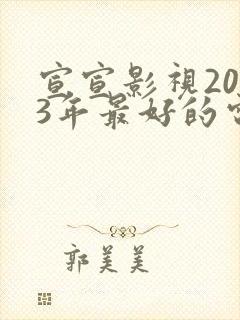 宣宣影視20
3年最好的
郭美美